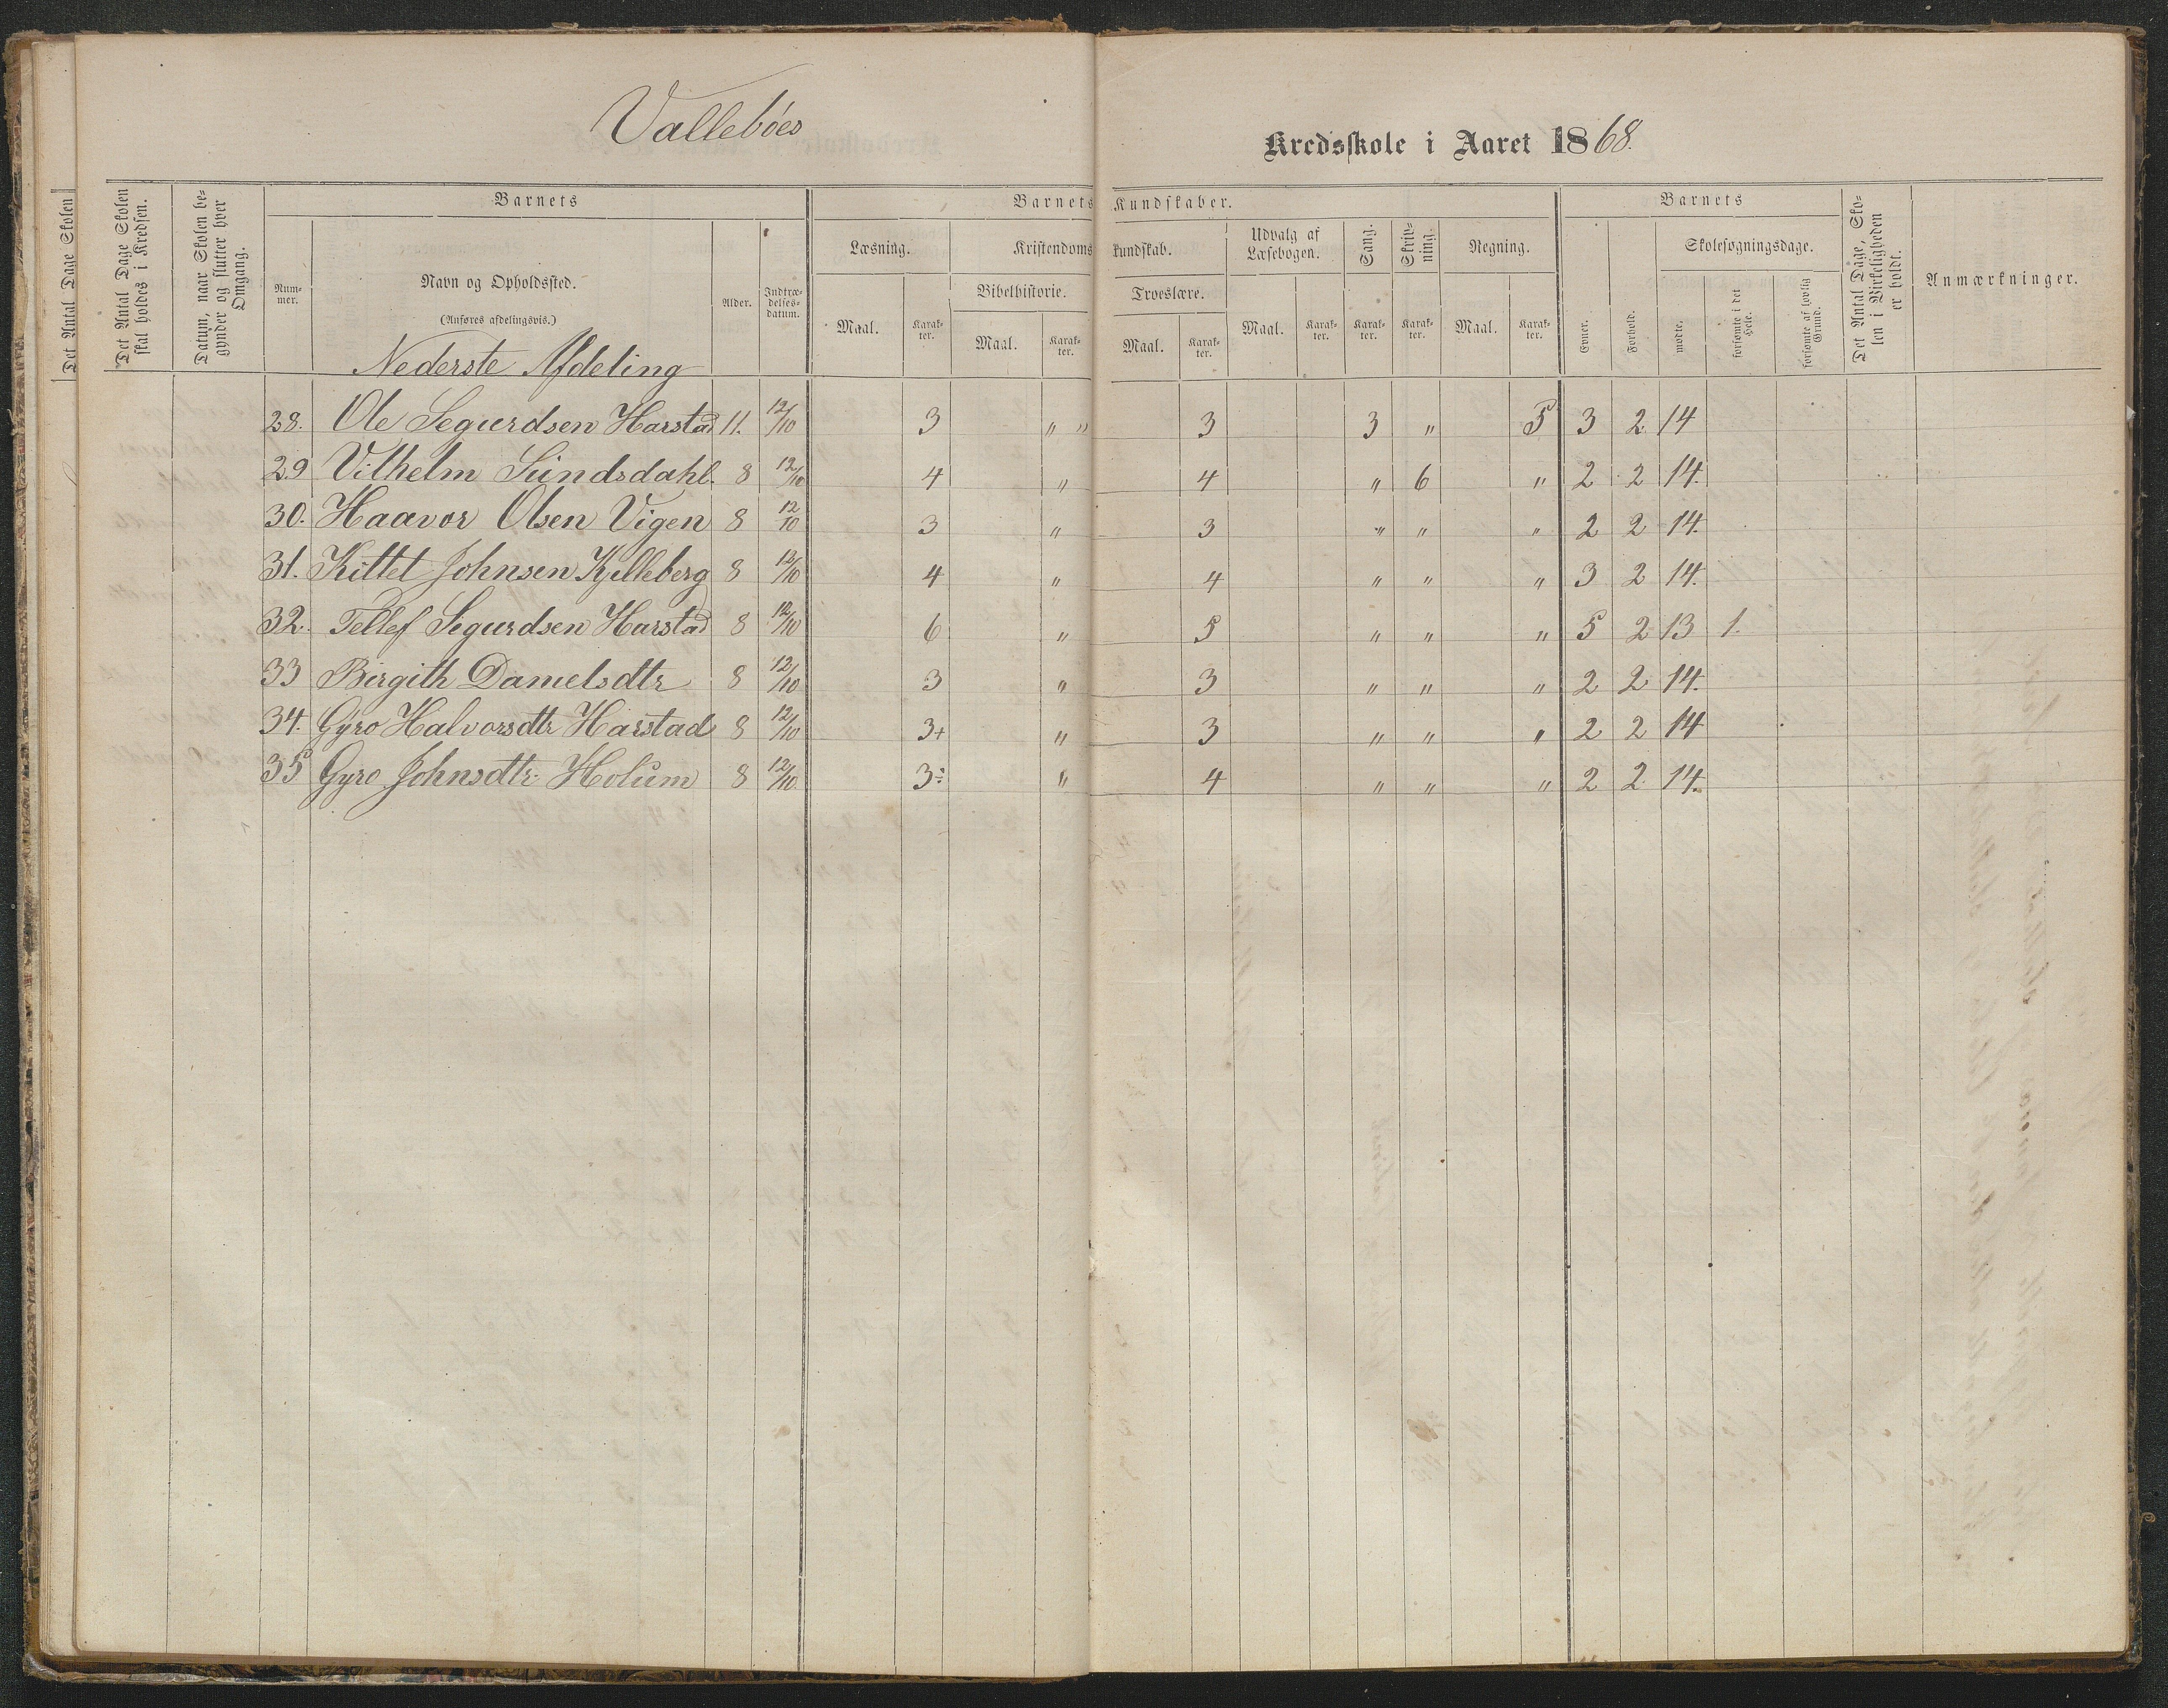 Vallebóes
Kredsskole i Aaret 1868.
Det Antal Dage Skolen
Det Antal Dage Skolen skal holdes i Kredsen.
Datum, naar Skolen begynder og slutter hver Omgang.
Barnets
Barnets Kundskaber.
Barnets
Det Antal Dage, Skolen i Virkeligheden er holdt.
Anmærkninger.
Nummer.
Navn og Opholdssted.
(Anføres afdelingsvis.)
Alder.
Indtrædelsesdatum.
Læsning.
Kristendomskundskab.
Udvalg af Læsebogen.
Sang.
Skrivning.
Regning.
Evner.
Forhold.
Skolesøgningsdage.
Bibelhistorie.
Troeslære.
mødte.
forsømte i det Hele.
forsømte af lovlig Grund.
Maal. Karakter. Maal. Karakter. Maal. Karakter. Maal. Karakter. Karakter. Karakter. Maal. Karakter.
Nederste Afdeling
28. Ole Segurdsen Harstad 11. 12/10 3 " " 3 3 " 5 3 2 14
29 Vilhelm Sundsdahl. 8 12/10 4 " 4 " 6 " 2 2 14.
30. Haavor Olsen Vigen 8 12/10 3 " 3 " " " 2 2 14.
31. Kittel Johnsen Kjelleberg 8 12/10 4 " 4 " " " 3 2 14.
32. Tellef Segurdsen Harstad 8 12/10 6 " 5 " " " 5 2 13 1.
33 Birgith Danielsdtr 8 12/10 3 " 3 " " " 2 2 14.
34. Gyro Halvorsdtr Harstad 8 12/10 3+ " 3 " " " 2 2 14
35 Gyro Johnsdtr. Holum 8 12/10. 3÷ " 4 " " " 2 2 14.